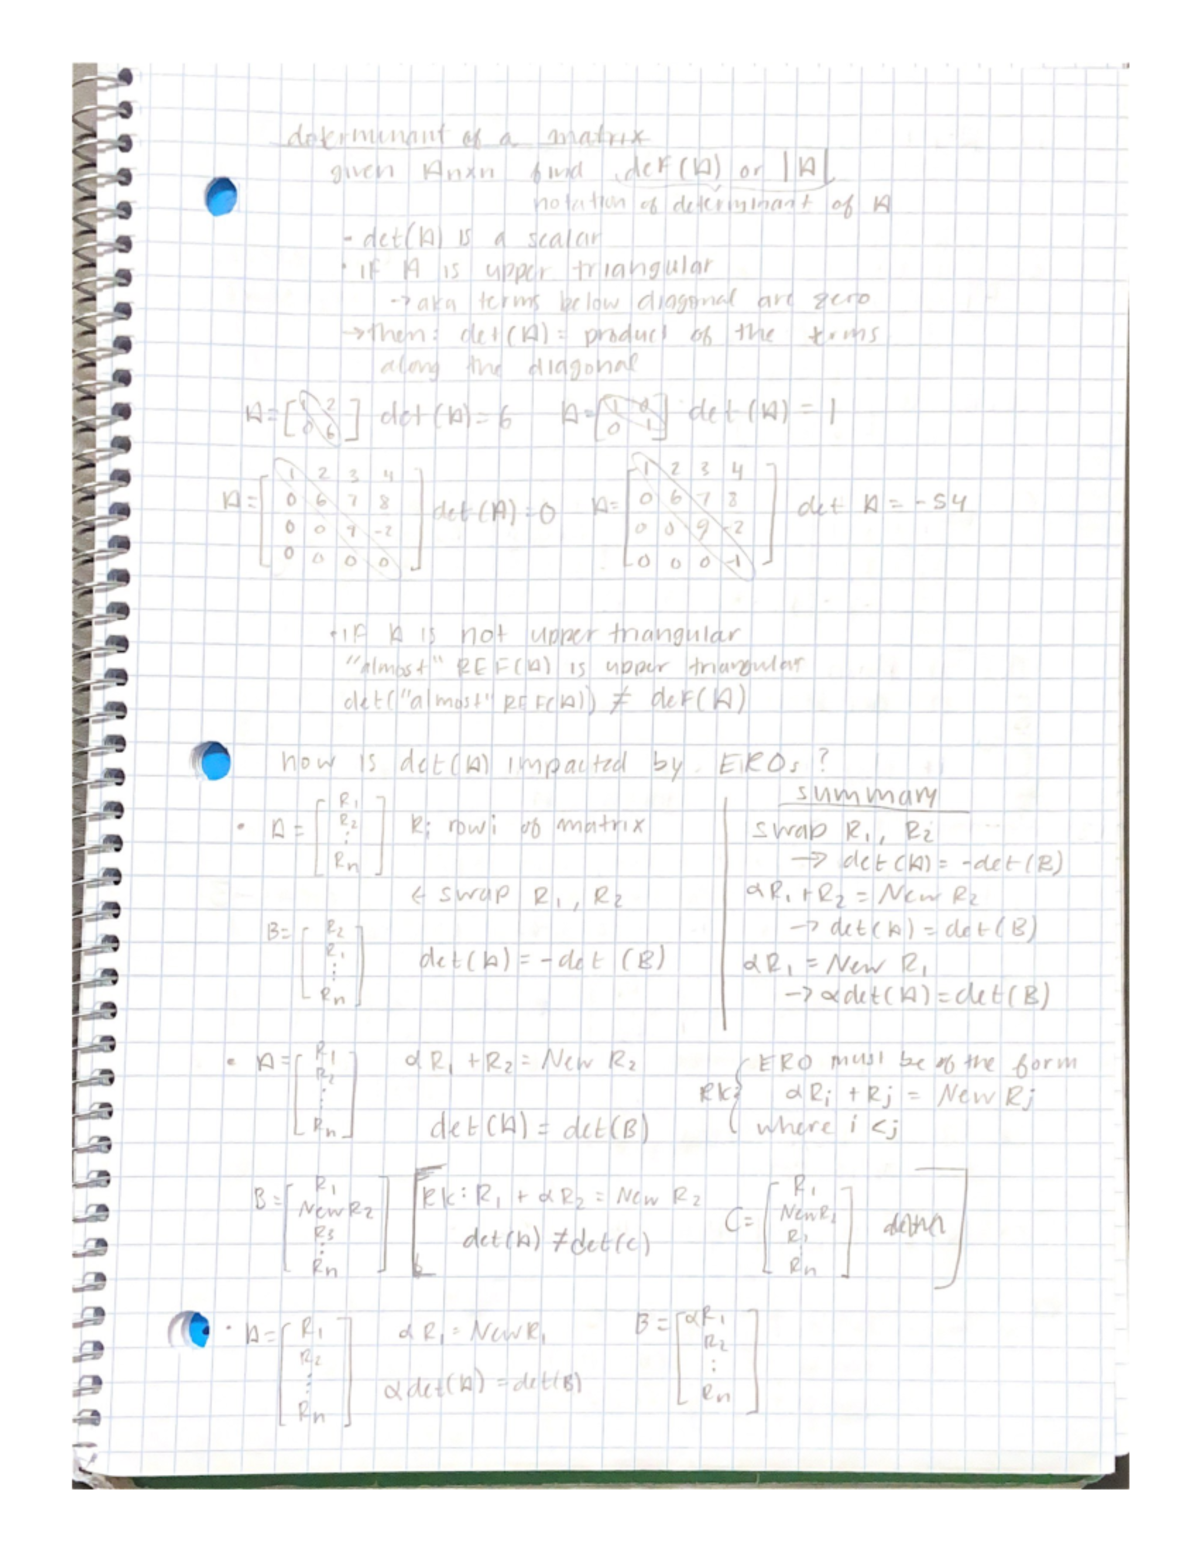 determinant of a matrix
given Anxn find det(A) or |A|
notation of determinant of A
- det(A) is a scalar
· if A is upper triangular
→ aka terms below diagonal are zero
→ then: det(A) = product of the terms
along the diagonal
A = [1 2 0 6] det(A) = 6 A = [1 0 0 1] det(A) = 1
A = [1 2 3 4 0 6 7 8 0 0 9 -2 0 0 0 0] det(A) = 0 A = [1 2 3 4 0 6 7 8 0 0 9 -2 0 0 0 -1] det A = -54
· if A is not upper triangular
"almost" REF(A) is upper triangular
det("almost" REF(A)) ≠ det(A)
how is det(A) impacted by EROs?
summary
• A = [R1 R2 ⋮ Rn] Ri rowi of matrix
swap R1, R2
→ det(A) = -det(B)
← swap R1, R2
αR1 + R2 = New R2
→ det(A) = det(B)
B = [R2 R1 ⋮ Rn] det(A) = -det (B)
αR1 = New R1
→ αdet(A) = det(B)
• A = [R1 R2 ⋮ Rn] αR1 + R2 = New R2
det(A) = det(B)
RK: { ERO must be of the form
αRi + Rj = New Rj
where i < j
B = [R1 New R2 R3 ⋮ Rn] [RK: R1 + αR2 = New R2
det(A) ≠ det(C)
C = [R1 New R2 ⋮ Rn]
· A = [R1 R2 ⋮ Rn] αR1 = New R1 B = [αR1 R2 ⋮ Rn]
αdet(A) = det(B)